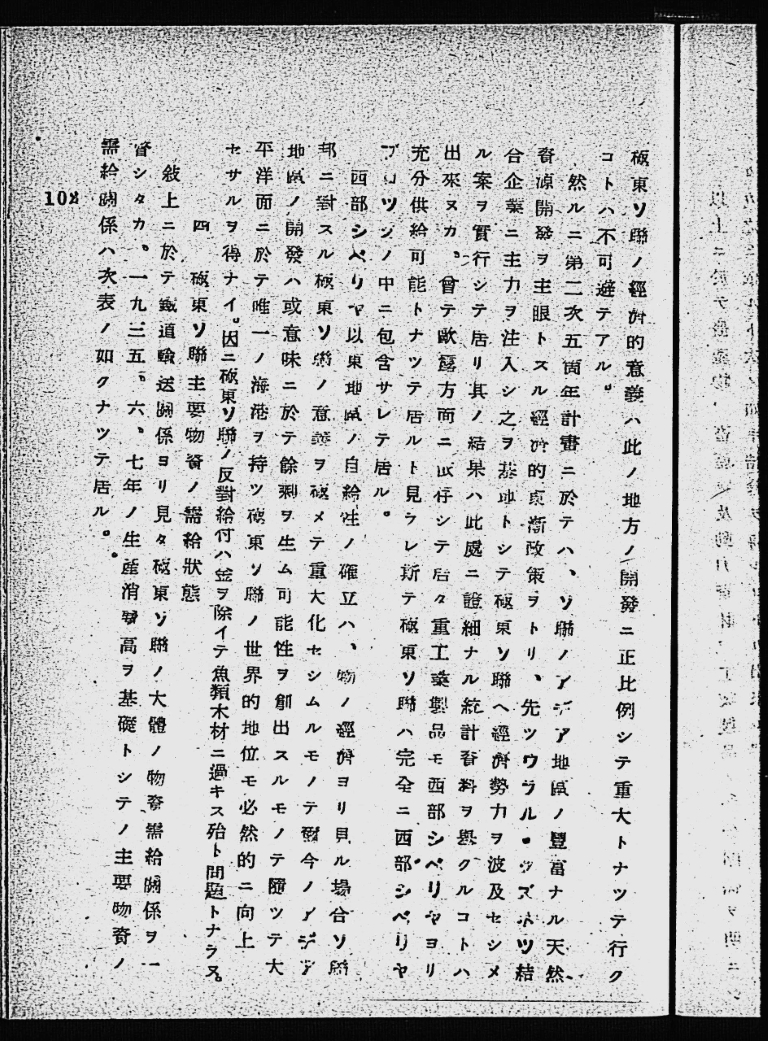 極東ソ聯ノ經濟的意義ハ此ノ地方ノ開發ニ正比例シテ重大トナツテ行ク
コトハ不可避テアル。
然ルニ第二次五箇年計畫ニ於テハ、ソ聯ノアジア地區ノ豐富ナル天然
資源開發ヲ主眼トスル經濟的東漸政策ヲトリ、先ツウラル・クズネツ結
合企業ニ主力ヲ注入シ之ヲ基地トシテ極東ソ聯ヘ經濟勢力ヲ波及セシメ
ル案ヲ實行シテ居リ其ノ結果ハ此處ニ證細ナル統計資料ヲ擧クルコトハ
出來ヌカ、曾テ歐露方面ニ依存シテ居タ重工業製品モ西部シベリヤヨリ
充分供給可能トナツテ居ルト見ラレ斯テ極東ソ聯ハ完全ニ西部シベリヤ
ブロツクノ中ニ包含サレテ居ル。
西部シベリヤ以東地區ノ自給性ノ確立ハ、物ノ經濟ヨリ見ル場合ソ聯
邦ニ對スル極東ソ聯ノ意義ヲ極メテ重大化セシムルモノテ爾今ノアジア
地區ノ開發ハ或意味ニ於テ餘剩ヲ生ム可能性ヲ創出スルモノテ隨ツテ大
平洋面ニ於テ唯一ノ海港ヲ持ツ極東ソ聯ノ世界的地位モ必然的ニ向上
セサルヲ得ナイ。因ニ極東ソ聯ノ反對給付ハ金ヲ除イテ魚類木材ニ過キス殆ト問題トナラヌ。
四 極東ソ聯主要物資ノ需給狀態
敍上ニ於テ鐵道輸送關係ヨリ見タ極東ソ聯ノ大體ノ物資需給關係ヲ一
瞥シタカ、一九三五、六、七年ノ生產消費高ヲ基礎トシテノ主要物資ノ
需給關係ハ次表ノ如クナツテ居ル。
102